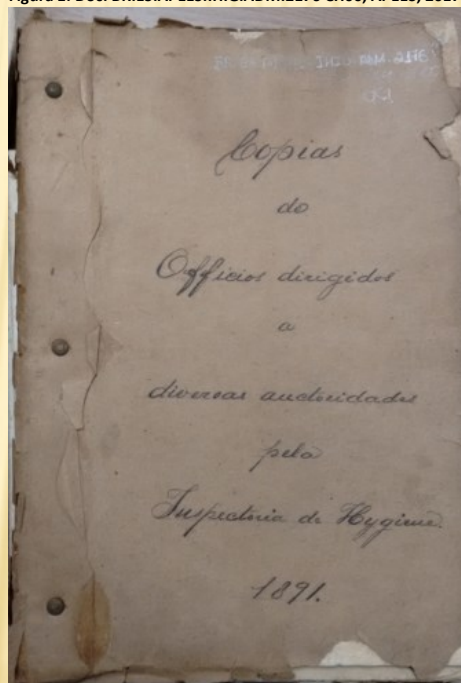 Copias
do
Officios dirigidos
a
diversas auctoridades
pela
Inspectoria de Hygiene.
1891.